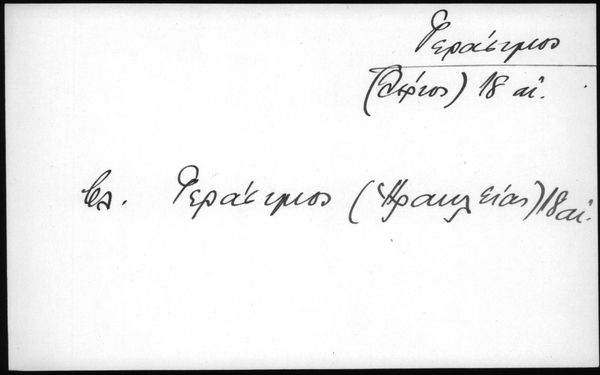 Γεράσιμος
(Λέριος) 18 αἰ.
βλ. Γεράσιμος (Ἡρακλείας) 18 αἰ.